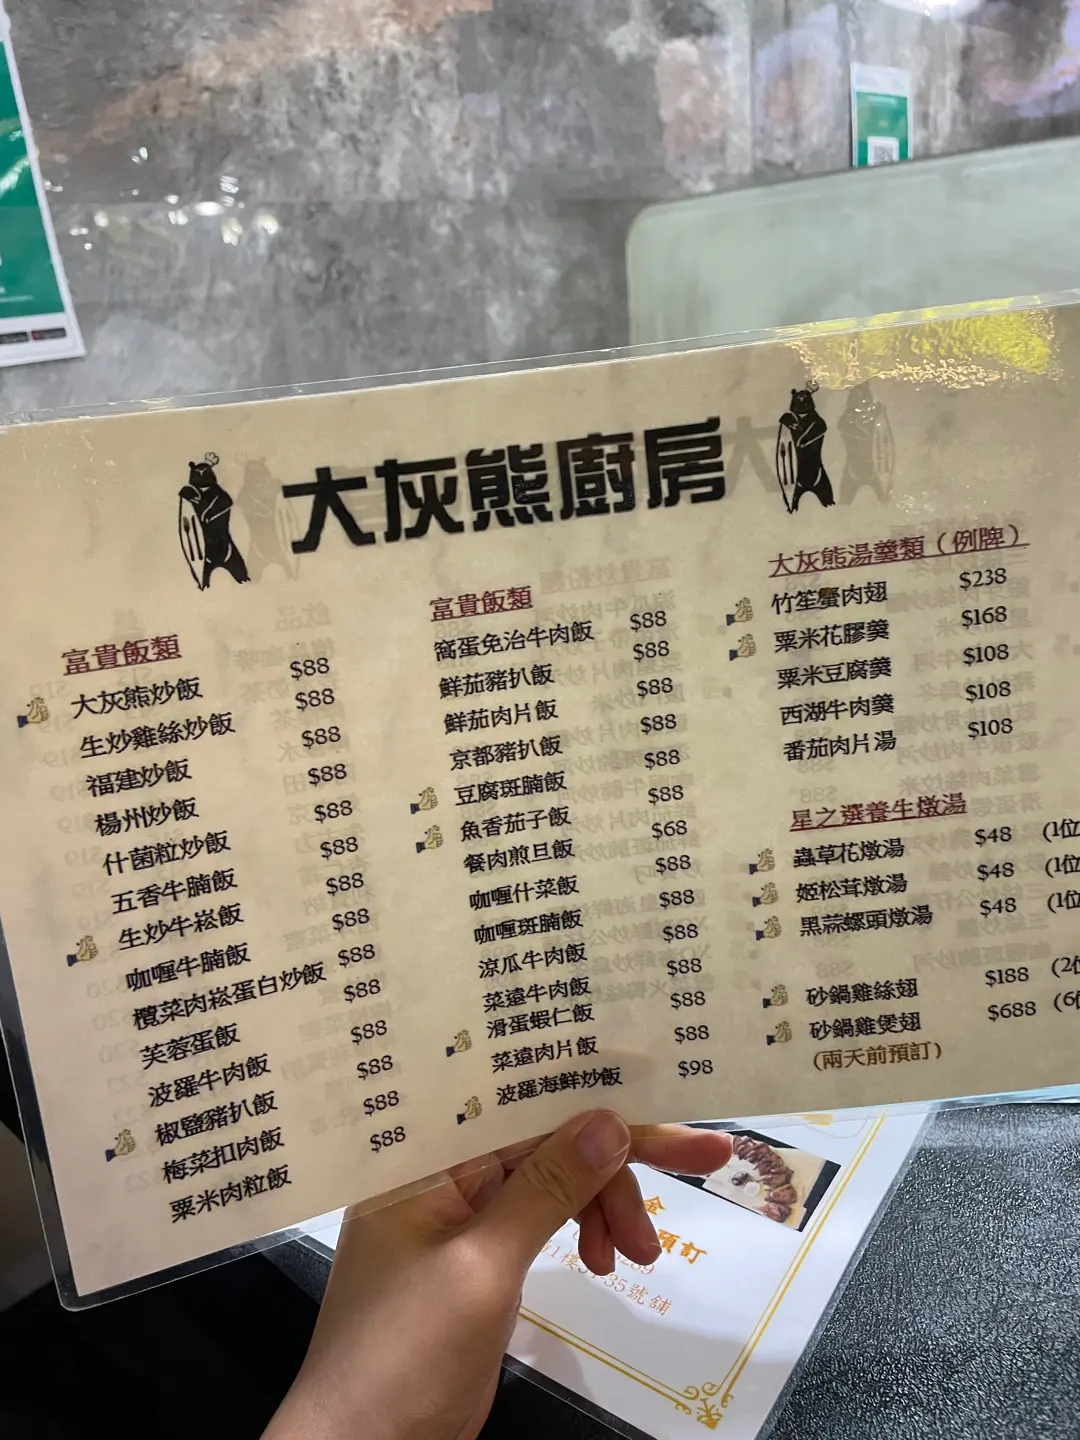 大灰熊廚房
富貴飯類
大灰熊炒飯 $88
生炒雞絲炒飯 $88
福建炒飯 $88
楊州炒飯 $88
什菌粒炒飯 $88
五香牛腩飯 $88
生炒牛崧飯 $88
咖喱牛腩飯 $88
欖菜肉崧蛋白炒飯 $88
芙蓉蛋飯 $88
波羅牛肉飯 $88
椒鹽豬扒飯 $88
梅菜扣肉飯 $88
粟米肉粒飯 $88
富貴飯類
窩蛋免治牛肉飯 $88
鮮茄豬扒飯 $88
鮮茄肉片飯 $88
京都豬扒飯 $88
豆腐斑腩飯 $88
魚香茄子飯 $88
餐肉煎旦飯 $68
咖喱什菜飯 $88
咖喱斑腩飯 $88
涼瓜牛肉飯 $88
菜遠牛肉飯 $88
滑蛋蝦仁飯 $88
菜遠肉片飯 $88
波羅海鮮炒飯 $98
大灰熊湯羹類（例牌）
竹笙蟹肉翅 $238
粟米花膠羹 $168
粟米豆腐羹 $108
西湖牛肉羹 $108
番茄肉片湯 $108
星之選養生燉湯
蟲草花燉湯 $48 (1位
姬松茸燉湯 $48 (1位
黑蒜螺頭燉湯 $48 (1位
砂鍋雞絲翅 $188 (2位
砂鍋雞煲翅 $688 (6位
(兩天前預訂)
金
預訂
35號舖